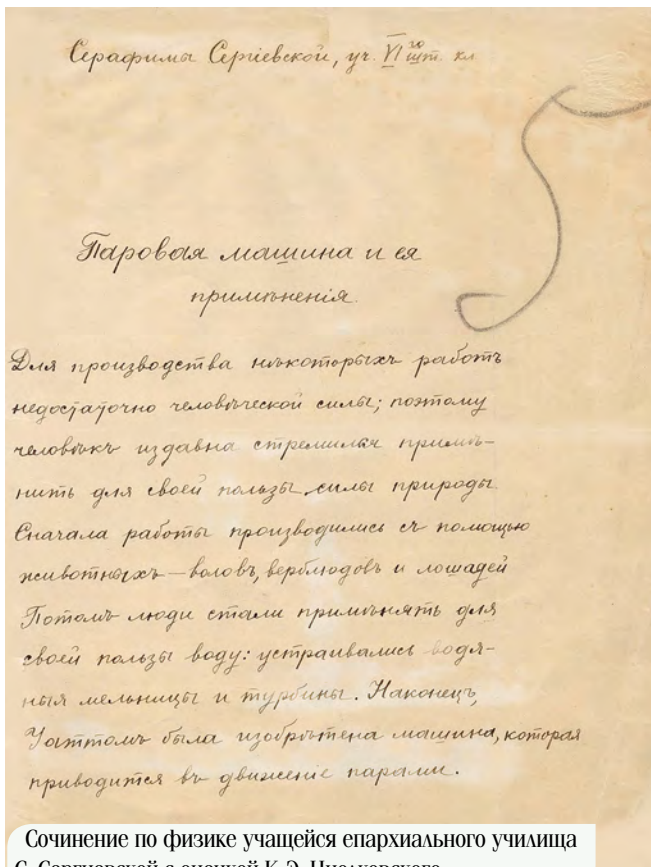 Серафимы Сергіевской, уч. VI го шт. кл
5
Паровая машина и ея
примѣненія.
Для производства нѣкоторыхъ работъ
недостаточно человѣческой силы; поэтому
человѣкъ издавна стремился примѣ-
нить для своей пользы силы природы
Сначала работы производились съ помощью
животныхъ — воловъ, верблюдовъ и лошадей
Потомъ люди стали примѣнять для
своей пользы воду: устраивались водя-
ныя мельницы и турбины. Наконецъ,
Уаттомъ была изобрѣтена машина, которая
приводится въ движеніе парами.
Сочинение по физике учащейся епархиального училища
С. Сергиевской с оценкой К.Э. Циолковского